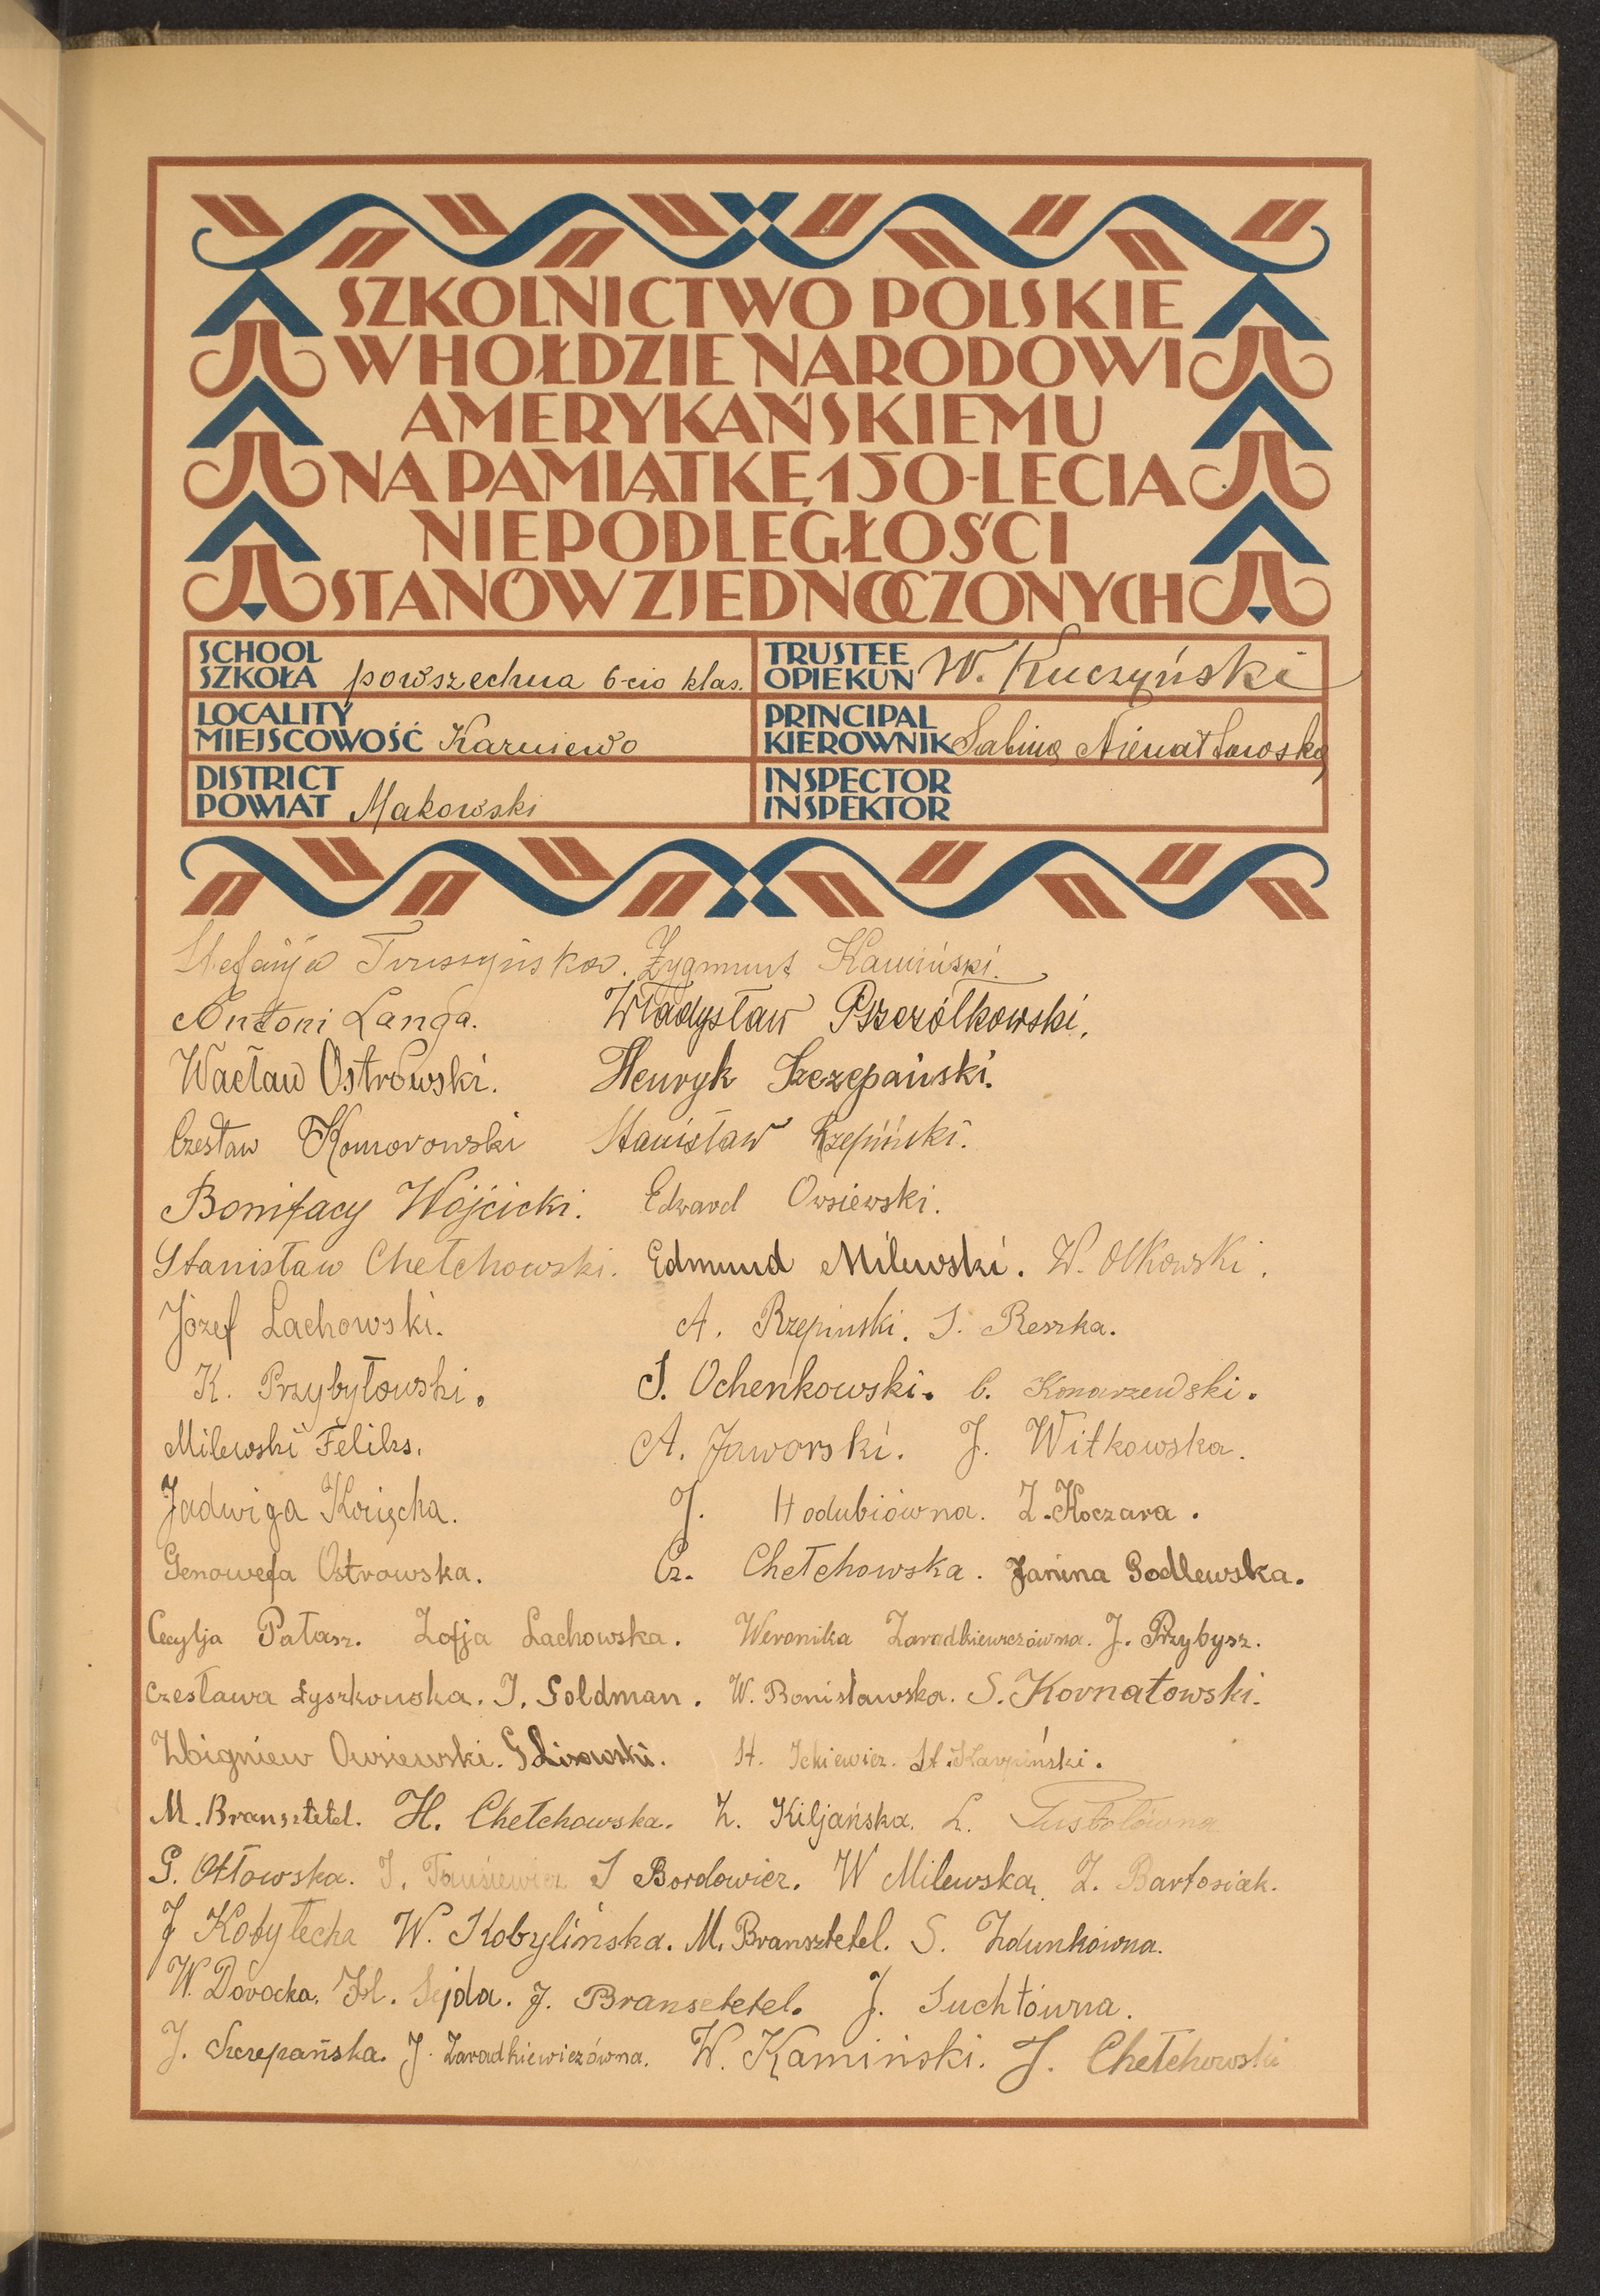 SZKOLNICTWO POLSKIE
W HOŁDZIE NARODOWI
AMERYKAŃSKIEMU
NA PAMIĄTKĘ 150-LECIA
NIEPODLEGŁOŚCI
STANÓW ZJEDNOCZONYCH
SCHOOL
SZKOŁA powszechna 6-cio klas.
TRUSTEE
OPIEKUN W. Kuczyński
LOCALITY
MIEJSCOWOŚĆ Karniewo
PRINCIPAL
KIEROWNIK Sabina
DISTRICT
POWIAT Makowski
INSPECTOR
INSPEKTOR
Stefanja Zygmunt Kamiński.
Antoni Langa. Władysław Pszczółkowski.
Wacław Ostrowski. Henryk Szczepański.
Czesław Komorowski Stanisław Rzepiński.
Bonifacy Wójcicki. Edward Owsiewski.
Stanisław Chełchowski. Edmund Milewski. W. Olkowski.
Józef Lachowski. A. Rzepinski. S. Reszka.
K. Przybyłowski. S. Ochenkowski. C. Konarzewski.
Milewski Feliks. A. Jaworski. J. Witkowska.
Jadwiga J. Hodubiówna. Z. Koczara.
Genowefa Ostrowska. Cz. Chełchowska. Janina Godlewska.
Cecylja Pałasz. Zofja Lachowska. Weronika Zaradkiewiczówna. J. Przybysz.
Czesława Łyszkowska. I. Goldman. W. Bonisławska. S. Kornatowski.
Zbigniew Owsiewski. G Lisowski. St. Ickiewicz. St. Karpiński.
M. Bransztetel. H. Chełchowska. Z. Kiljańska. L.
G. Otłowska. I. S Bordowicz. W Milewska. Z. Bartosiak.
J Kobyłecka W. Kobylińska. M. Bransztetel. S. Zdunkówna.
W. Dorocka. Hl. Sejda. J. Bransztetel. J. Suchtówna.
J. Szczepańska. J. Zaradkiewiczówna. W. Kamiński. J. Chełchowski